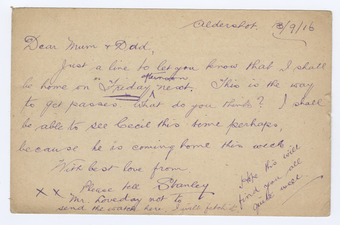 Aldershot. 13/9/16
Dear Mum & Dad,
Just a line to let you know that I shall
be home on Friday afternoon next. This is the way
to get passes. What do you think? I shall
be able to see Cecil this time perhaps,
because he is coming home this week.
With best love from
Stanley
x x Please tell
Mr. Loveday not to
send the watch here I will fetch it
Hope this will
find you all
quite well